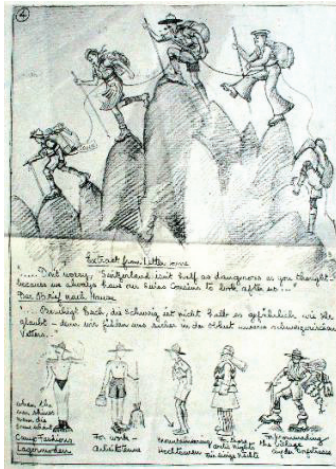 4
Extract from Letter home
"..... Don't worry, Switzerland isn't half as dangerous as you thought
because we always have our Swiss Cousins to look after us ..."
Der Brief nach Hause
"... Beruhigt Euch, die Schweiz ist nicht halb so gefährlich wie Ihr
glaubt – denn wir fühlen uns sicher in der Obhut unserer schweizerischen
Vettern.
when the
sun shines
Camp Fashions
Lagermoden
For work –
Arbeitstenue
Mountaineering
Hochtouren
For
nights
Für eisige Nächte
For
the village